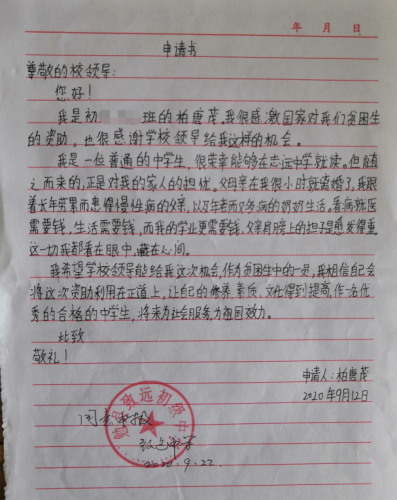 年 月 日
申请书
尊敬的校领导:
您好!
我是初 班的柏唐茂,我很感激国家对我们贫困生
的资助,也很感谢学校领导给我这样的机会。
我是一位普通的中学生,很荣幸能够在志远中学就读。但随
之而来的,正是对我的家人的担忧。父母亲在我很小时就离婚了,我跟
着长年劳累而患得慢性病的父亲,以及年老而又多病的奶奶生活。看病就医
需要钱,生活需要钱,而我的学业更需要钱,父亲肩膀上的担子是愈发得重
这一切我都看在眼中,藏在心间。
我希望学校领导能给我这次机会,作为贫困生中的一员,我相信自己会
将这次资助利用在正道上,让自己的修养、素质、文化得到提高,作一名优
秀的合格的中学生,将来为社会服务,为祖国效力。
此致
敬礼!
申请人:柏唐茂
2020年9月12日
远初级中
2020.9.22.